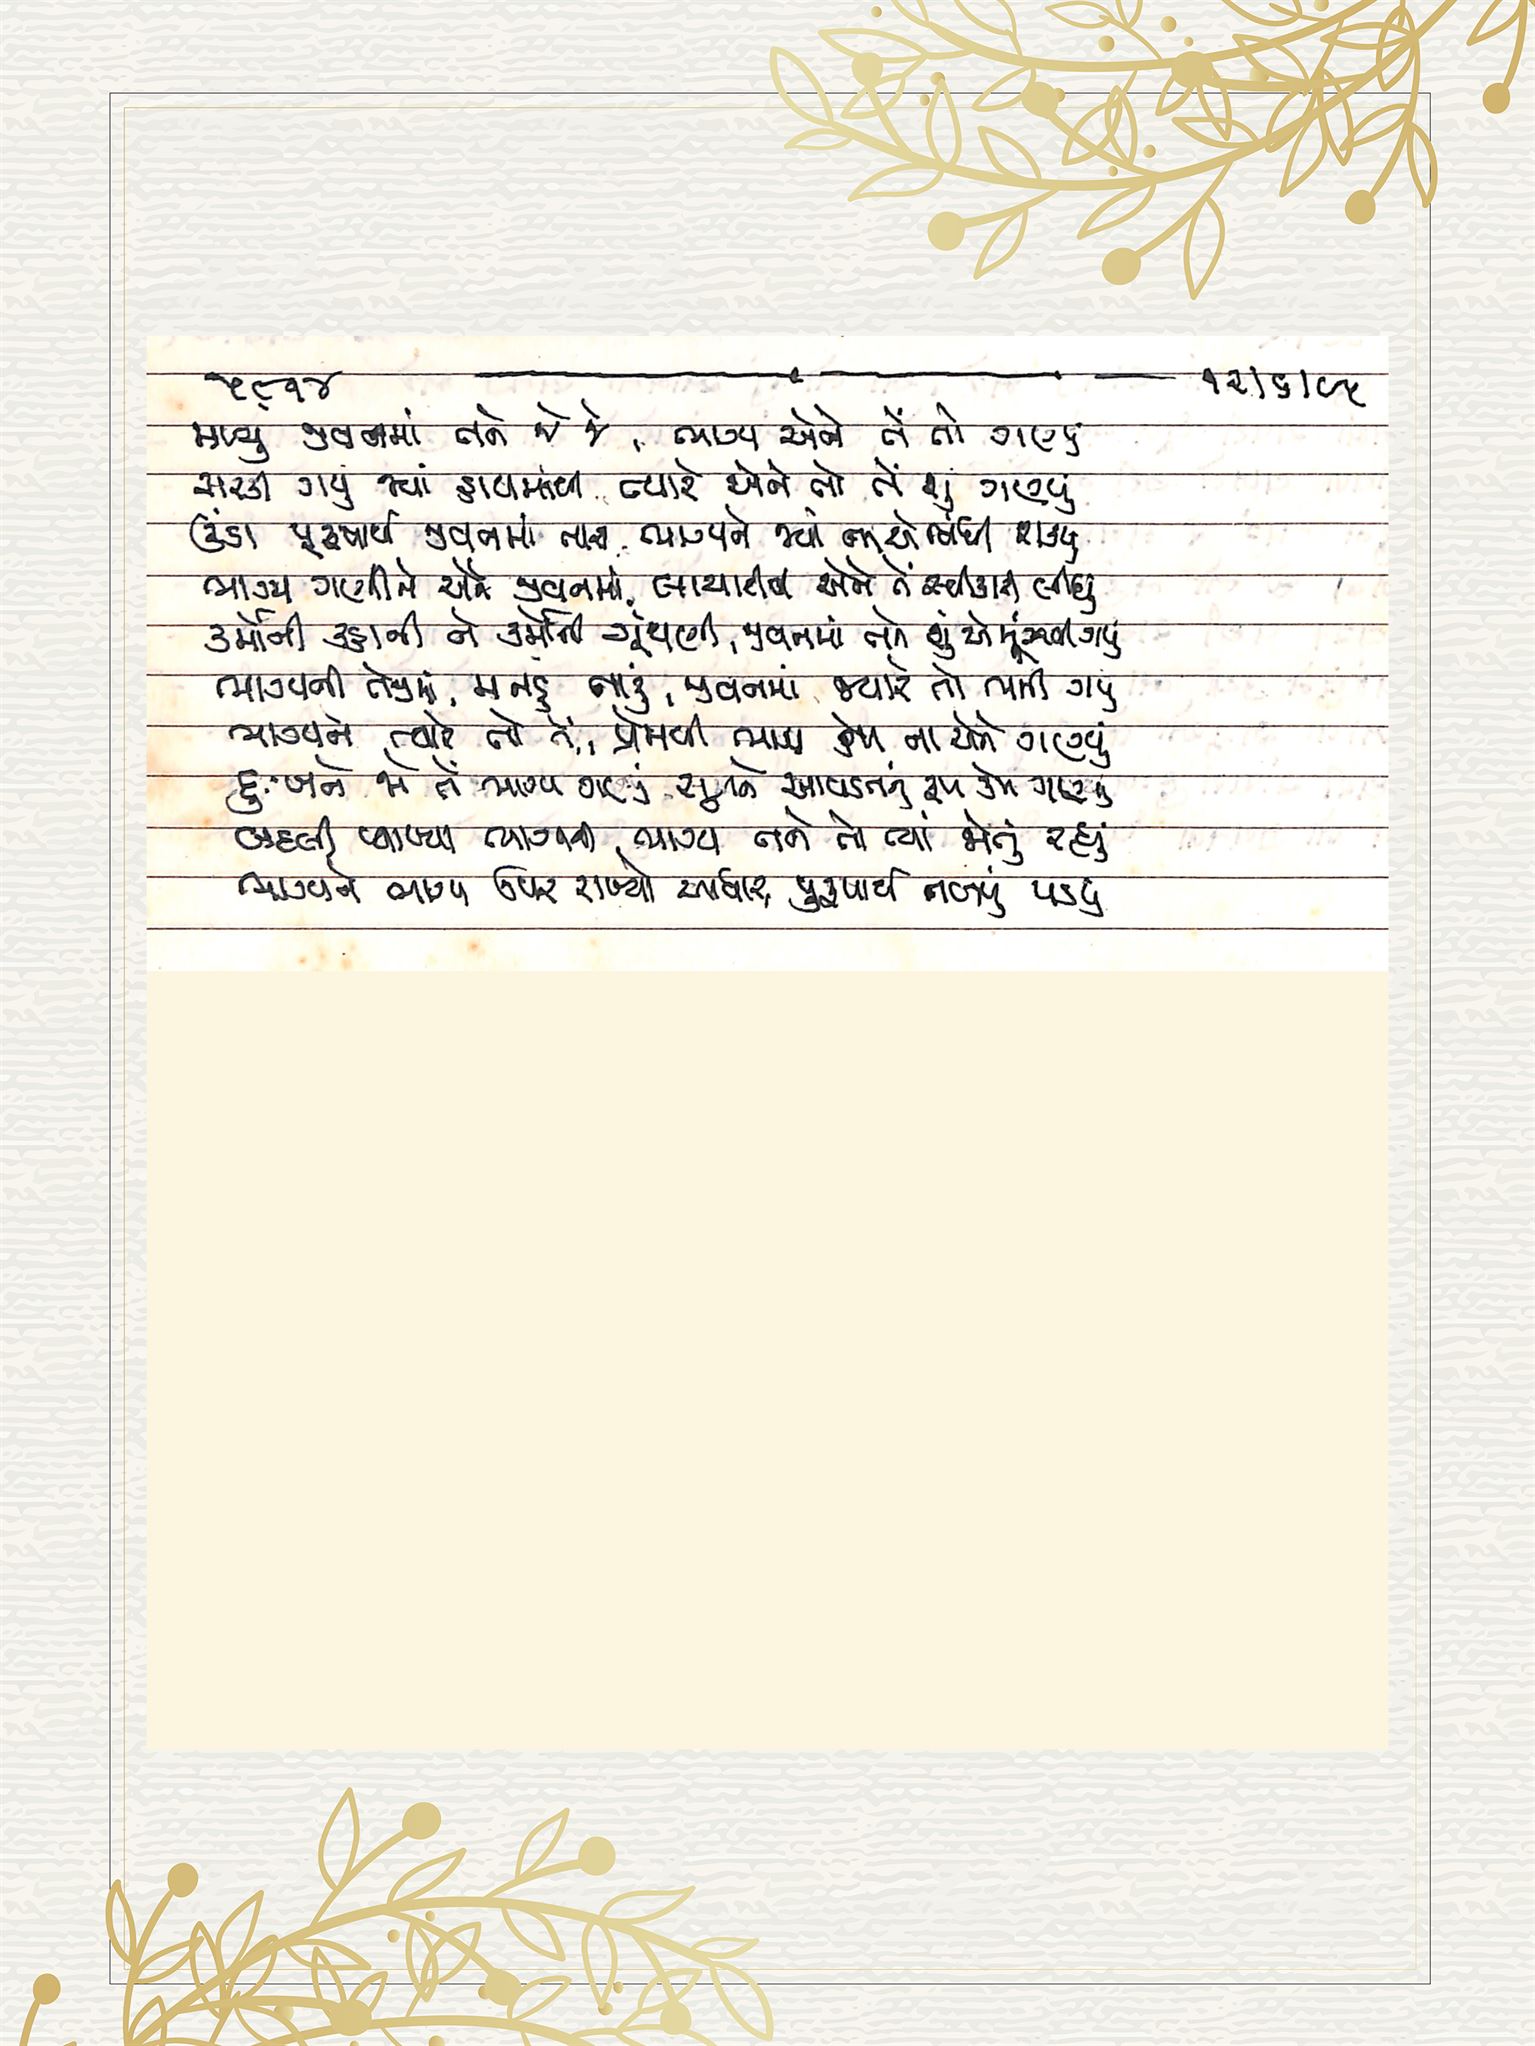 ૫૮૧૪ ૧૨/૬/૯૫
મળ્યું જીવનમાં તને જે જે, ભાગ્ય એને તેં તો ગણ્યું
સરકી ગયું જ્યાં હાથમાંથી, ત્યારે એને તો તેં શું ગણ્યું
ઉંડા પૂરૂષાર્થ જીવનમાં તારા, ભાગ્યને જ્યાં ના એ બાંધી શક્યું
ભાગ્ય ગણીને એને જીવનમાં, એને તેં સ્વીકારી લીધું
ઉર્મોની ઉડાની ને ઉર્મોની ગૂંથણી, જીવનમાં તને શું એ મૂંઝવી ગયું
ભાગ્યની તેજીમાં, મનડું તારું, જીવનમાં જ્યારે તો ભળી ગયું
ભાગ્યને ત્યારે તો તેં, પ્રેમથી ભાગ્ય કેમ ના એને ગણ્યું
દુઃખને જો તેં ભાગ્ય ગણ્યું, સુખને આવડતનું રૂપ કેમ ગણ્યું
બદલી વ્યાખ્યા ભાગ્યની, ભાગ્ય તને તો ત્યાં જોતું રહ્યું
ભાગ્યને ભાગ્ય ઉપર રાખ્યો આધાર, પુરૂષાર્થ નબળું પડયું